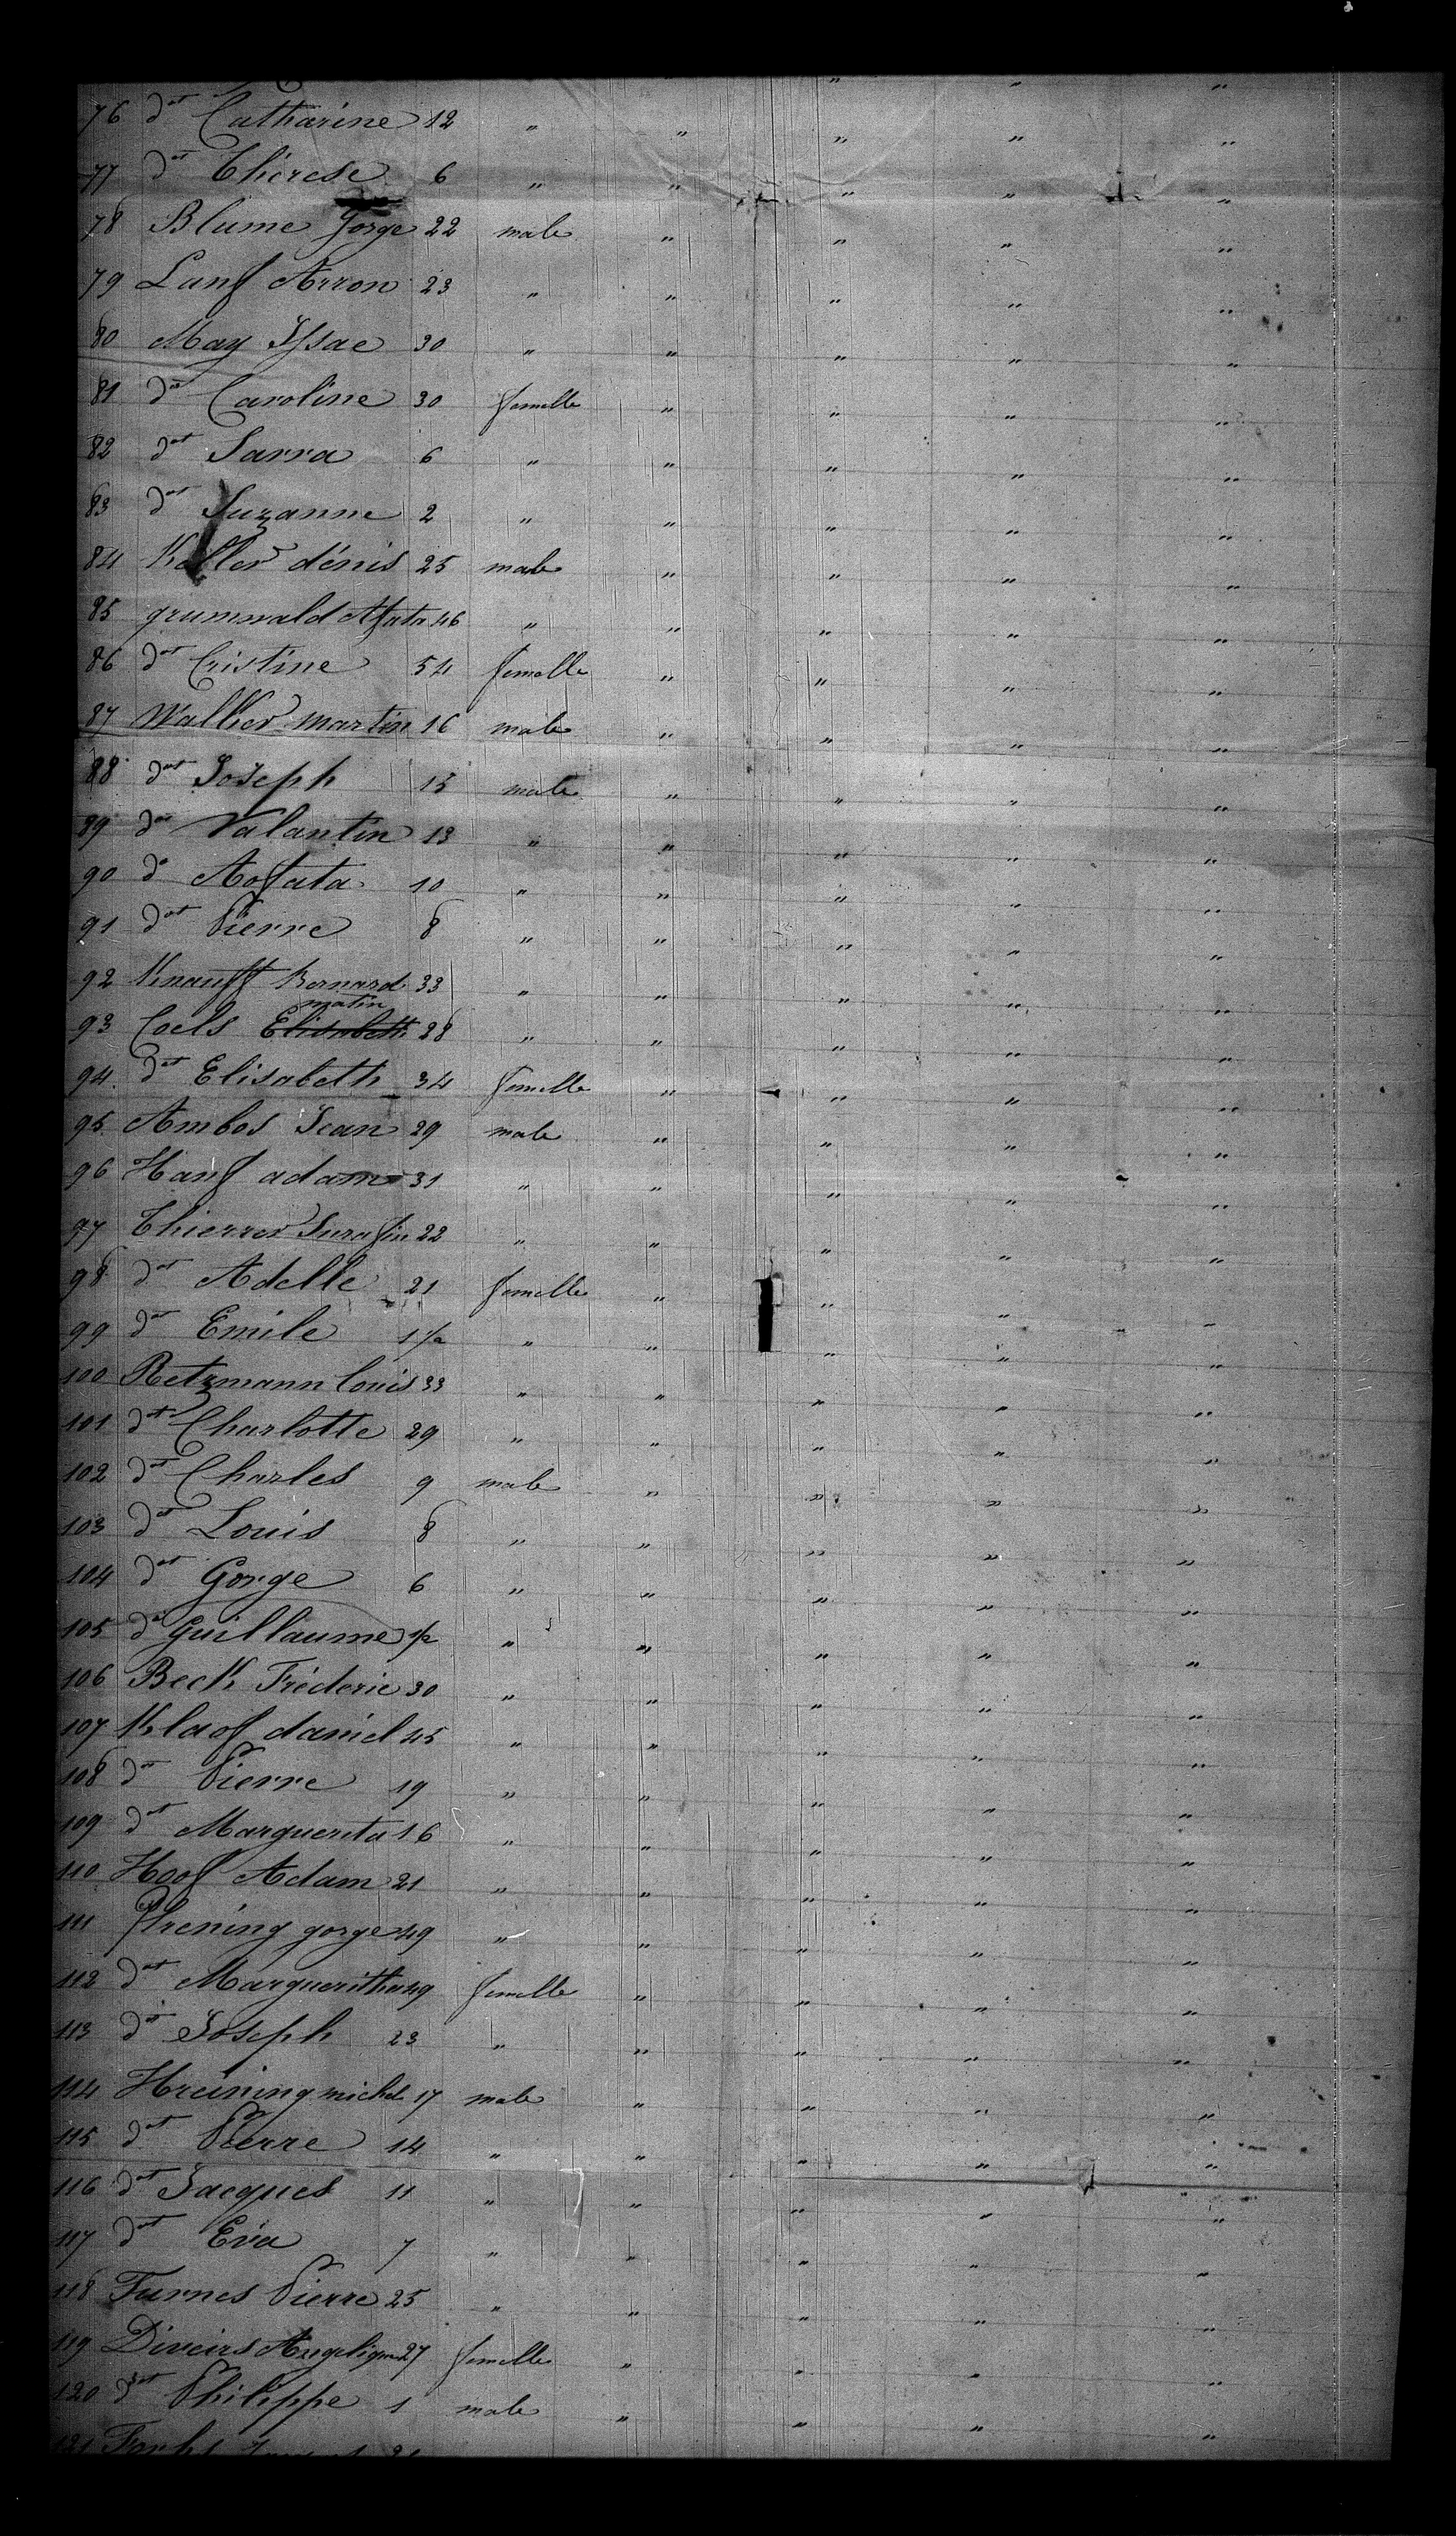 76 dot Catharine 12 " " " " "
77 dot Thérese 6 " " " " "
78 Blume Gorge 22 male " " " "
79 Lanf Arron 23 " " " " "
80 May Issac 30 " " " " "
81 do Caroline 30 femelle " " " "
82 dot Sarra 6 " " " " "
83 dot Suzanne 2 " " " " "
84 Keller dénis 25 male " " " "
85 grumwald Afata 46 " " " " "
86 dot Cristine 54 femelle " " " "
87 Walker martin 16 male " " " "
88 dot Joseph 15 male " " " "
89 do Valantin 13 " " " " "
90 do Aofata 10 " " " " "
91 dot Pierre 8 " " " " "
92 Knauff Bernard 33 " " " " "
matin
93 Coels Elisabeth 28 " " " " "
94 dot Elisabeth 34 femelle " " " "
95 Ambos Jean 29 male " " " "
96 Hanf adam 31 " " " " "
97 Thierrer Surafin 22 " " " " "
98 dot Adelle 21 femelle " " " "
99 dot Emile 1 1/2 " " " " "
100 Retzmann Louis 33 " " " " "
101 dot Charlotte 29 " " " " "
102 dot Charles 9 male " " " "
103 dot Louis 8 " " " " "
104 dot Gorge 6 " " " " "
105 do Guillaume 1/2 " " " " "
106 Beck Fréderic 30 " " " " "
107 Klaof daniel 45 " " " " "
108 do Pierre 19 " " " " "
109 dot Marguerita 16 " " " " "
110 Hoof Adam 21 " " " " "
111 Phrening gorge 49 " " " " "
112 dot Margueritha 49 femelle " " " "
113 do Joseph 23 " " " " "
114 Hreining michel 17 male " " " "
115 dot Pierre 14 " " " " "
116 dot Jacques 11 " " " " "
117 dot Eva 7 " " " " "
118 Furnes Pierre 25 " " " " "
119 Diveirs Angelique 27 femelle " " " "
120 dot Philippe 1 male " " " "
121